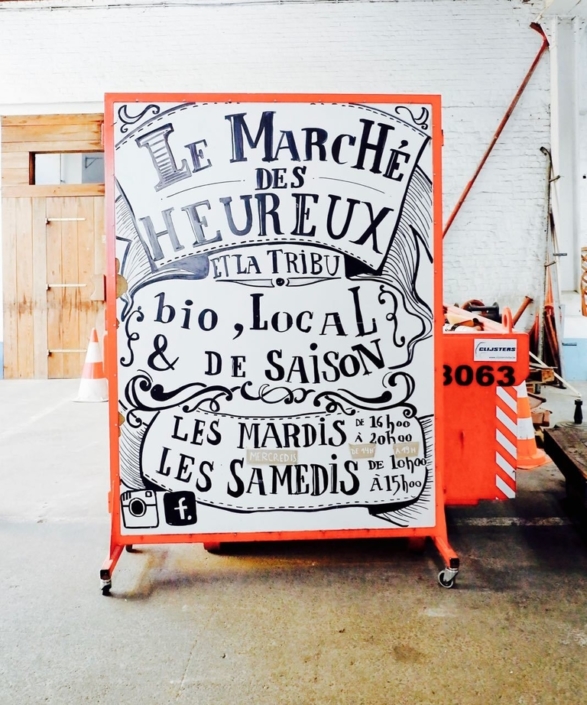 Le Marché
des
Heureux
et la Tribu
bio, Local
& de Saison
Les Mardis de 16h00 à 20h00
Mercredis
Les Samedis de 10h00 à 15h00
f
CLIJSTERS
3063